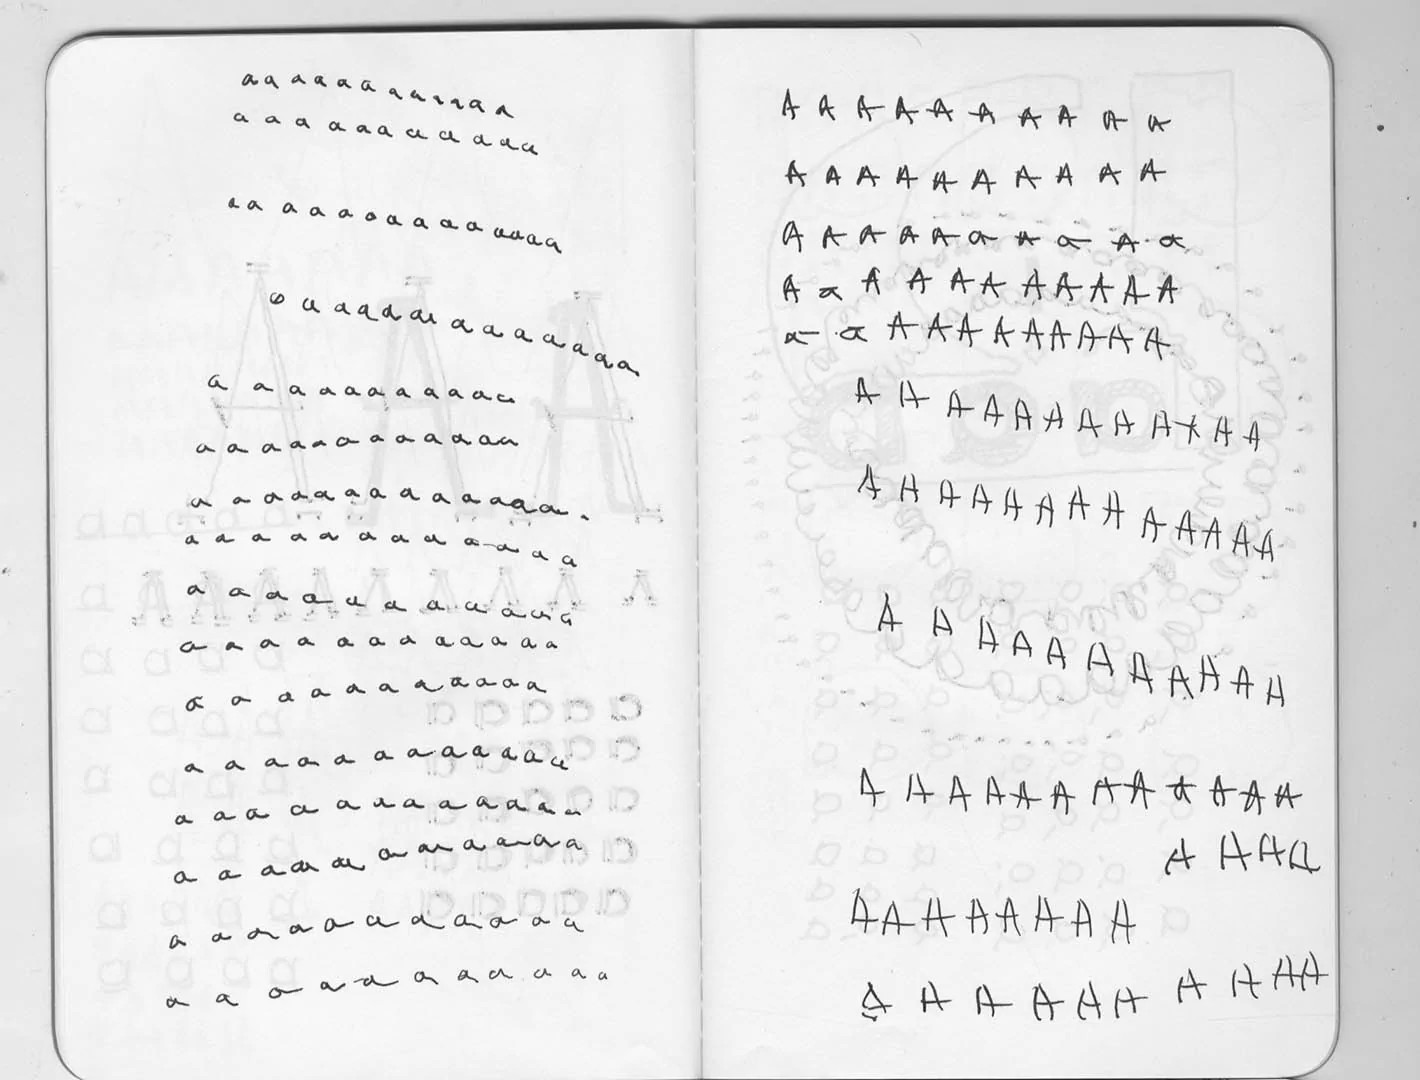 a a a a a a a a a a a a
a a a a a a a a a a a
a a a a a a a a a a a a a a
a a a a a a a a a a a a a
a a a a a a a a a a a
a a a a a a a a a a a a
a a a a a a a a a a a a a
a a a a a a a a a a a a
a a a a a a a a a a a
a a a a a a a a a a a
a a a a a a a a a a a
a a a a a a a a a a a a
a a a a a a a a a a a a
a a a a a a a a a a a a
a a a a a a a a a a a
a a a a a a a a a a a
A A A A A A A A A A
A A A A A A A A A A
A A A A A a A a A a
A a A A A A A A A A A
a a A A A A A A A A A
A A A A A A A A A A A A
A A A A A A A A A A A A A
A A A A A A A A A A A
A A A A A A A A A A A A
A A A A
A A A A A A A A
A A A A A A A A A A